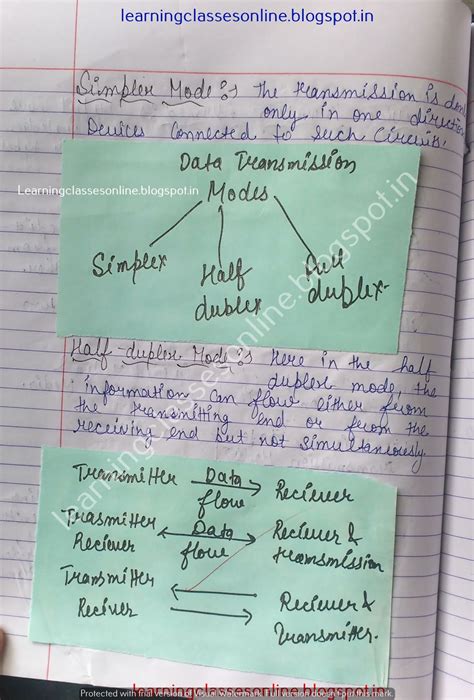 learningclassesonline.blogspot.in
Simplex Mode :→ The transmission is done
only in one direction
Devices Connected to Such Circuits.
Data Transmission
Learningclassesonline.blogspot.in
Modes
Simplex
Half
dublex
Full
dublex
Half-duplex Mode :→ Here in the half
duplex mode, the
information can flow either from
the transmitting end or from the
receiving end but not simultaneously
Transmitter Data flow Reciever
Trasmitter
Reciever
Data
flow
Reciever &
transmission
Transmitter
Reciver
Reciever &
Transmitter.
learningclassesonline.blogspot.in
learningclassesonline.blogspot.in
Protected with free version of Visual Watermark. Full version doesn't put this mark.